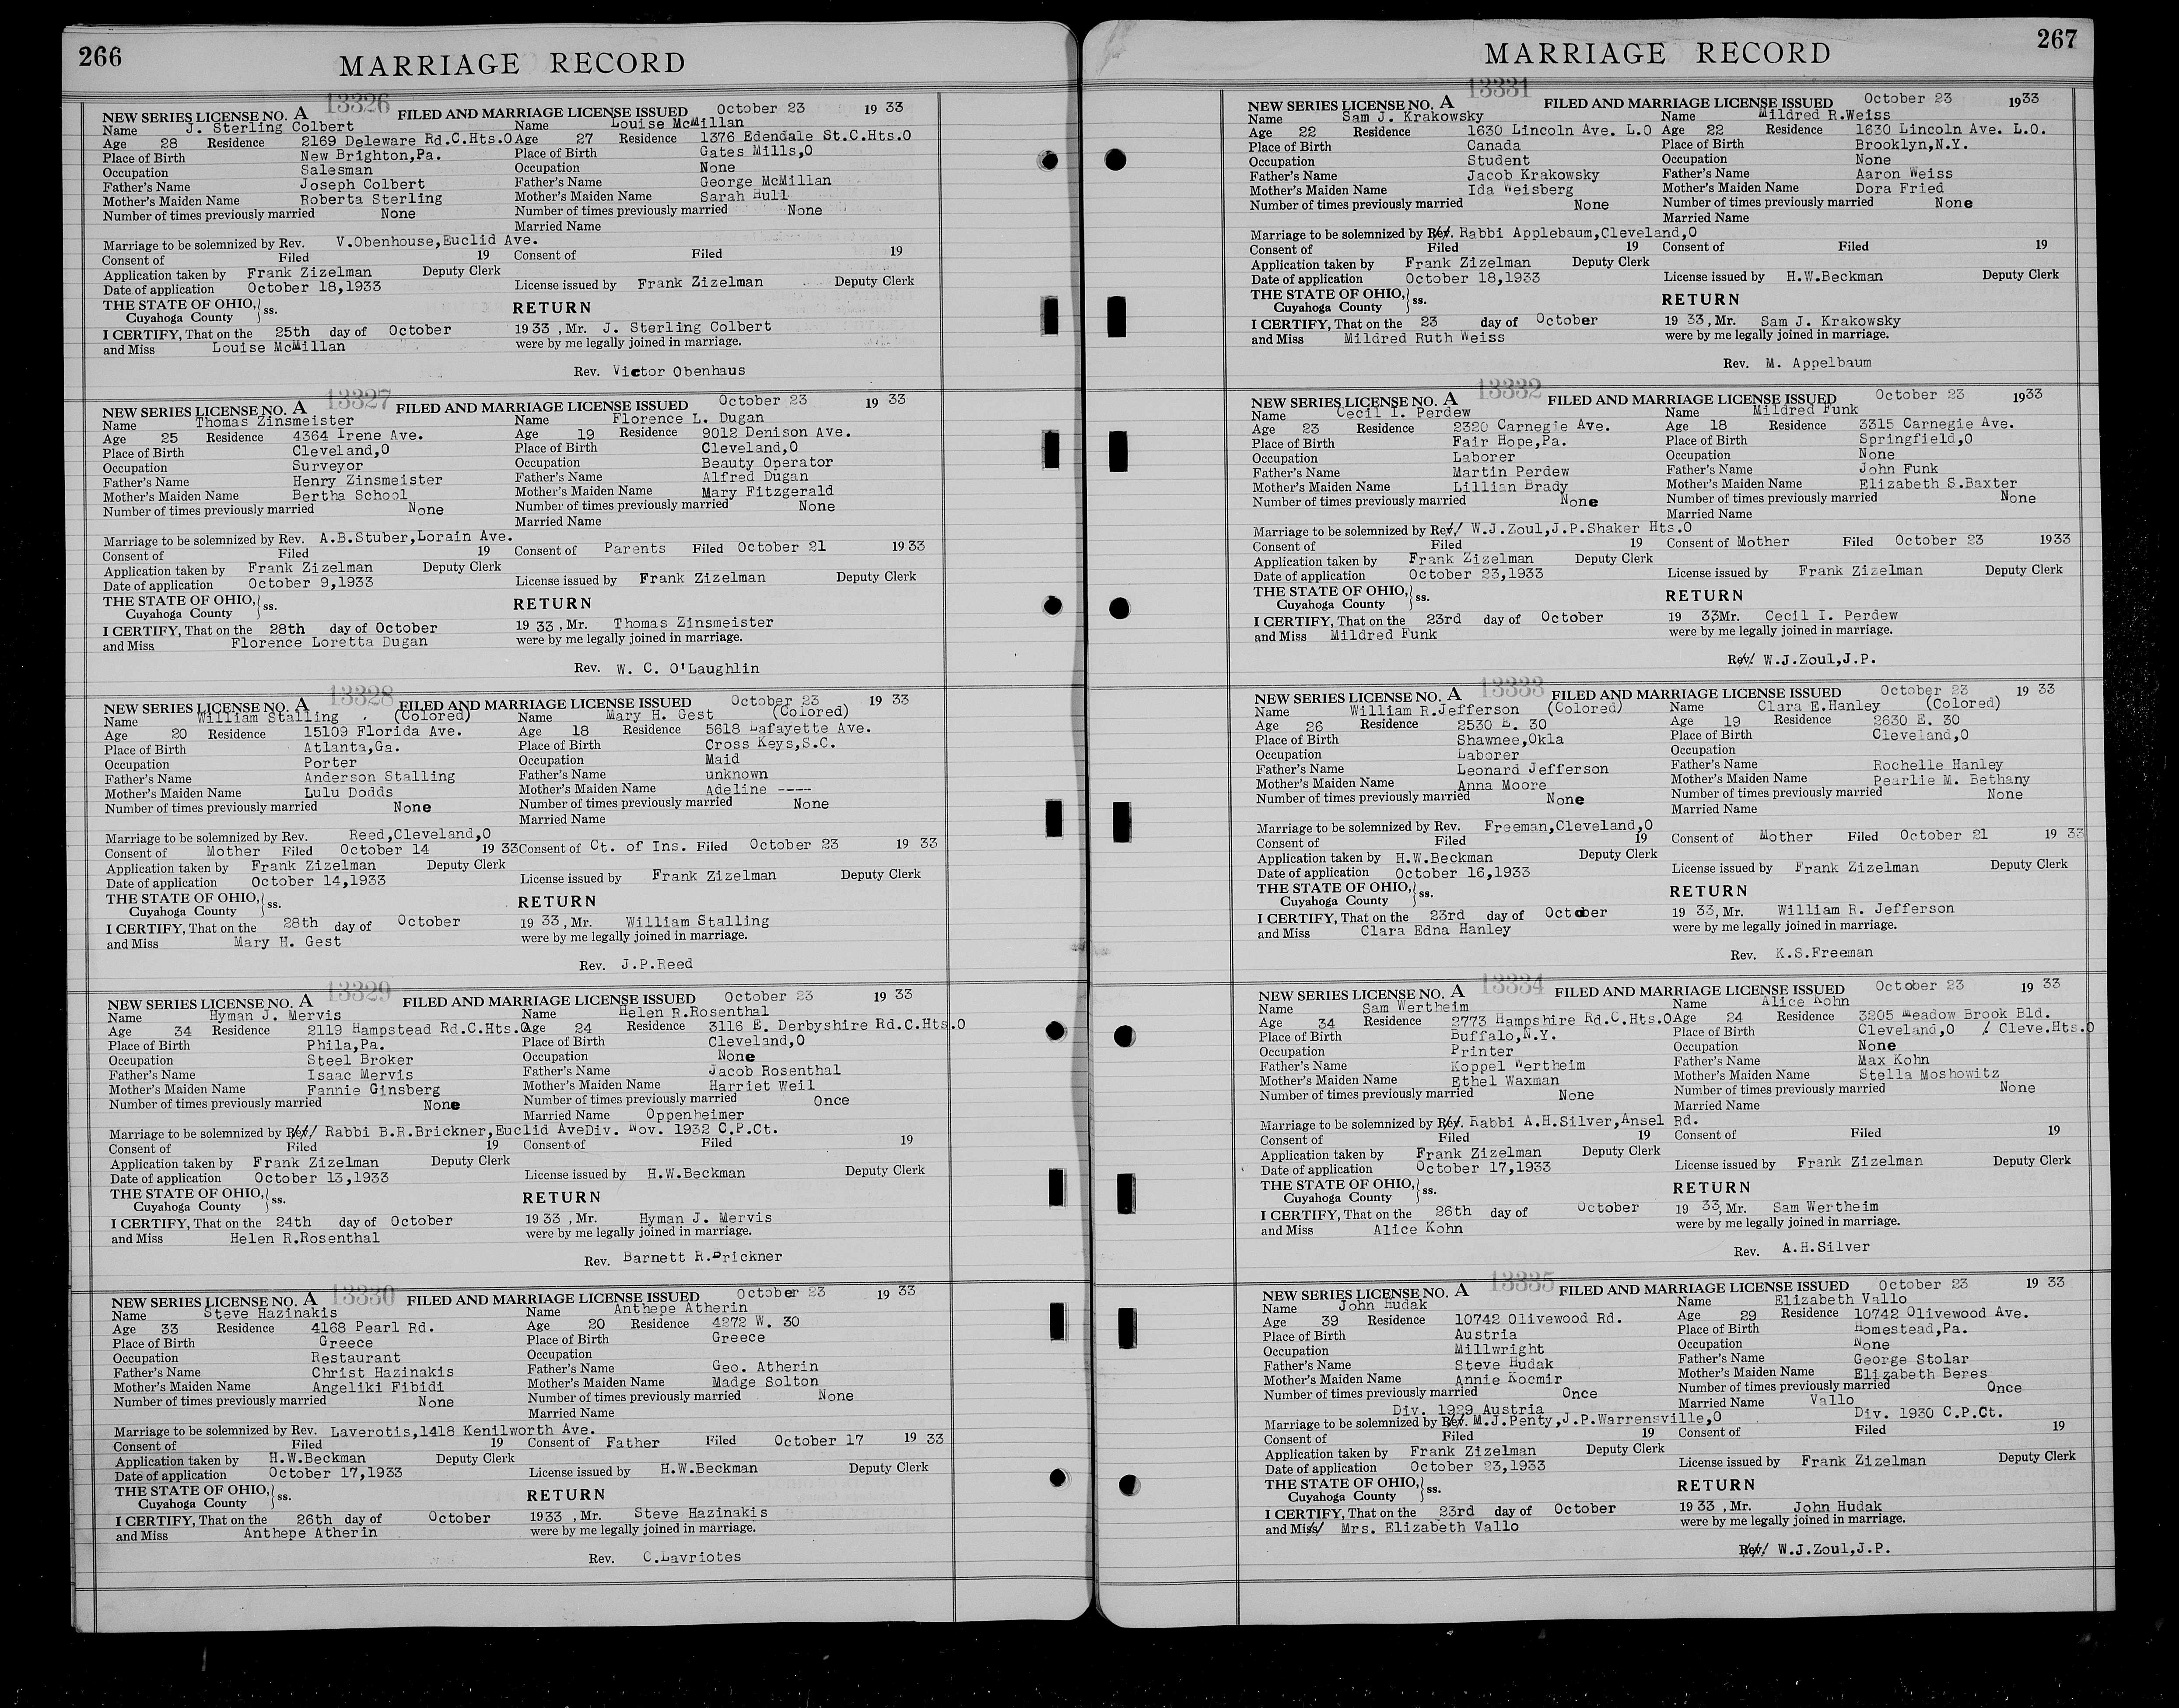 266
MARRIAGE RECORD
NEW SERIES LICENSE NO. A 13326 FILED AND MARRIAGE LICENSE ISSUED October 23 19 33
Name J. Sterling Colbert Name Louise McMillan
Age 28 Residence 2169 Deleware Rd.C.Hts.O Age 27 Residence 1376 Edendale St.C.Hts.O
Place of Birth New Brighton,Pa. Place of Birth Gates Mills,O
Occupation Salesman Occupation None
Father's Name Joseph Colbert Father's Name George McMillan
Mother's Maiden Name Roberta Sterling Mother's Maiden Name Sarah Hull
Number of times previously married None Number of times previously married None
Married Name
Marriage to be solemnized by Rev. V.Obenhouse,Euclid Ave.
Consent of Filed 19 Consent of Filed 19
Application taken by Frank Zizelman Deputy Clerk
Date of application October 18,1933 License issued by Frank Zizelman Deputy Clerk
THE STATE OF OHIO, Cuyahoga County ss. RETURN
I CERTIFY, That on the 25th day of October 19 33 , Mr. J. Sterling Colbert
and Miss Louise McMillan were by me legally joined in marriage.
Rev. Victor Obenhaus
NEW SERIES LICENSE NO. A 13327 FILED AND MARRIAGE LICENSE ISSUED October 23 19 33
Name Thomas Zinsmeister Name Florence L. Dugan
Age 25 Residence 4364 Irene Ave. Age 19 Residence 9012 Denison Ave.
Place of Birth Cleveland,O Place of Birth Cleveland,O
Occupation Surveyor Occupation Beauty Operator
Father's Name Henry Zinsmeister Father's Name Alfred Dugan
Mother's Maiden Name Bertha School Mother's Maiden Name Mary Fitzgerald
Number of times previously married None Number of times previously married None
Married Name
Marriage to be solemnized by Rev. A.B.Stuber,Lorain Ave.
Consent of Filed 19 Consent of Parents Filed October 21 19 33
Application taken by Frank Zizelman Deputy Clerk
Date of application October 9,1933 License issued by Frank Zizelman Deputy Clerk
THE STATE OF OHIO, Cuyahoga County ss. RETURN
I CERTIFY, That on the 28th day of October 19 33 , Mr. Thomas Zinsmeister
and Miss Florence Loretta Dugan were by me legally joined in marriage.
Rev. W. C. O'Laughlin
NEW SERIES LICENSE NO. A 13328 FILED AND MARRIAGE LICENSE ISSUED October 23 19 33
Name William Stalling (Colored) Name Mary H. Gest (Colored)
Age 20 Residence 15109 Florida Ave. Age 18 Residence 5618 Lafayette Ave.
Place of Birth Atlanta,Ga. Place of Birth Cross Keys,S.C.
Occupation Porter Occupation Maid
Father's Name Anderson Stalling Father's Name unknown
Mother's Maiden Name Lulu Dodds Mother's Maiden Name Adeline ----
Number of times previously married None Number of times previously married None
Married Name
Marriage to be solemnized by Rev. Reed,Cleveland,O
Consent of Mother Filed October 14 19 33 Consent of Ct. of Ins. Filed October 23 19 33
Application taken by Frank Zizelman Deputy Clerk
Date of application October 14,1933 License issued by Frank Zizelman Deputy Clerk
THE STATE OF OHIO, Cuyahoga County ss. RETURN
I CERTIFY, That on the 28th day of October 19 33 , Mr. William Stalling
and Miss Mary H. Gest were by me legally joined in marriage.
Rev. J.P.Reed
NEW SERIES LICENSE NO. A 13329 FILED AND MARRIAGE LICENSE ISSUED October 23 19 33
Name Hyman J. Mervis Name Helen R.Rosenthal
Age 34 Residence 2119 Hampstead Rd.C.Hts.O Age 24 Residence 3116 E. Derbyshire Rd.C.Hts.O
Place of Birth Phila,Pa. Place of Birth Cleveland,O
Occupation Steel Broker Occupation None
Father's Name Isaac Mervis Father's Name Jacob Rosenthal
Mother's Maiden Name Fannie Ginsberg Mother's Maiden Name Harriet Weil
Number of times previously married None Number of times previously married Once
Married Name Oppenheimer
Marriage to be solemnized by Rev. Rabbi B.R.Brickner,Euclid Ave Div. Nov. 1932 C.P.Ct.
Consent of Filed 19 Consent of Filed 19
Application taken by Frank Zizelman Deputy Clerk
Date of application October 13,1933 License issued by H.W.Beckman Deputy Clerk
THE STATE OF OHIO, Cuyahoga County ss. RETURN
I CERTIFY, That on the 24th day of October 19 33 , Mr. Hyman J. Mervis
and Miss Helen R.Rosenthal were by me legally joined in marriage.
Rev. Barnett R.Brickner
NEW SERIES LICENSE NO. A 13330 FILED AND MARRIAGE LICENSE ISSUED October 23 19 33
Name Steve Hazinakis Name Anthepe Atherin
Age 33 Residence 4168 Pearl Rd. Age 20 Residence 4272 W. 30
Place of Birth Greece Place of Birth Greece
Occupation Restaurant Occupation
Father's Name Christ Hazinakis Father's Name Geo. Atherin
Mother's Maiden Name Angeliki Fibidi Mother's Maiden Name Madge Solton
Number of times previously married None Number of times previously married None
Married Name
Marriage to be solemnized by Rev. Laverotis,1418 Kenilworth Ave.
Consent of Filed 19 Consent of Father Filed October 17 19 33
Application taken by H.W.Beckman Deputy Clerk
Date of application October 17,1933 License issued by H.W.Beckman Deputy Clerk
THE STATE OF OHIO, Cuyahoga County ss. RETURN
I CERTIFY, That on the 26th day of October 1933 , Mr. Steve Hazinakis
and Miss Anthepe Atherin were by me legally joined in marriage.
Rev. C.Lavriotes
267
MARRIAGE RECORD
NEW SERIES LICENSE NO. A 13331 FILED AND MARRIAGE LICENSE ISSUED October 23 1933
Name Sam J. Krakowsky Name Mildred R.Weiss
Age 22 Residence 1630 Lincoln Ave. L.O Age 22 Residence 1630 Lincoln Ave. L.O.
Place of Birth Canada Place of Birth Brooklyn,N.Y.
Occupation Student Occupation None
Father's Name Jacob Krakowsky Father's Name Aaron Weiss
Mother's Maiden Name Ida Weisberg Mother's Maiden Name Dora Fried
Number of times previously married None Number of times previously married None
Married Name
Marriage to be solemnized by Rev. Rabbi Applebaum,Cleveland,O
Consent of Filed 19 Consent of Filed 19
Application taken by Frank Zizelman Deputy Clerk
Date of application October 18,1933 License issued by H.W.Beckman Deputy Clerk
THE STATE OF OHIO, Cuyahoga County ss. RETURN
I CERTIFY, That on the 23 day of October 19 33, Mr. Sam J. Krakowsky
and Miss Mildred Ruth Weiss were by me legally joined in marriage.
Rev. M. Appelbaum
NEW SERIES LICENSE NO. A 13332 FILED AND MARRIAGE LICENSE ISSUED October 23 1933
Name Cecil I. Perdew Name Mildred Funk
Age 23 Residence 2320 Carnegie Ave. Age 18 Residence 3315 Carnegie Ave.
Place of Birth Fair Hope,Pa. Place of Birth Springfield,O
Occupation Laborer Occupation None
Father's Name Martin Perdew Father's Name John Funk
Mother's Maiden Name Lillian Brady Mother's Maiden Name Elizabeth S.Baxter
Number of times previously married None Number of times previously married None
Married Name
Marriage to be solemnized by Rev. W.J.Zoul,J.P.Shaker Hts.O
Consent of Filed 19 Consent of Mother Filed October 23 1933
Application taken by Frank Zizelman Deputy Clerk
Date of application October 23,1933 License issued by Frank Zizelman Deputy Clerk
THE STATE OF OHIO, Cuyahoga County ss. RETURN
I CERTIFY, That on the 23rd day of October 19 33 Mr. Cecil I. Perdew
and Miss Mildred Funk were by me legally joined in marriage.
Rev. W.J.Zoul,J.P.
NEW SERIES LICENSE NO. A 13333 FILED AND MARRIAGE LICENSE ISSUED October 23 19 33
Name William R.Jefferson (Colored) Name Clara E.Hanley (Colored)
Age 26 Residence 2530 E. 30 Age 19 Residence 2630 E. 30
Place of Birth Shawnee,Okla Place of Birth Cleveland,O
Occupation Laborer Occupation
Father's Name Leonard Jefferson Father's Name Rochelle Hanley
Mother's Maiden Name Anna Moore Mother's Maiden Name Pearlie M. Bethany
Number of times previously married None Number of times previously married None
Married Name
Marriage to be solemnized by Rev. Freeman,Cleveland,O
Consent of Filed 19 Consent of Mother Filed October 21 19 33
Application taken by H.W.Beckman Deputy Clerk
Date of application October 16,1933 License issued by Frank Zizelman Deputy Clerk
THE STATE OF OHIO, Cuyahoga County ss. RETURN
I CERTIFY, That on the 23rd day of October 19 33, Mr. William R. Jefferson
and Miss Clara Edna Hanley were by me legally joined in marriage.
Rev. K.S.Freeman
NEW SERIES LICENSE NO. A 13334 FILED AND MARRIAGE LICENSE ISSUED October 23 19 33
Name Sam Wertheim Name Alice Kohn
Age 34 Residence 2773 Hampshire Rd.C.Hts.O Age 24 Residence 3205 Meadow Brook Bld.
Place of Birth Buffalo,N.Y. Place of Birth Cleveland,O / Cleve.Hts.O
Occupation Printer Occupation None
Father's Name Koppel Wertheim Father's Name Max Kohn
Mother's Maiden Name Ethel Waxman Mother's Maiden Name Stella Moshowitz
Number of times previously married None Number of times previously married None
Married Name
Marriage to be solemnized by Rev. Rabbi A.H.Silver,Ansel Rd.
Consent of Filed 19 Consent of Filed 19
Application taken by Frank Zizelman Deputy Clerk
Date of application October 17,1933 License issued by Frank Zizelman Deputy Clerk
THE STATE OF OHIO, Cuyahoga County ss. RETURN
I CERTIFY, That on the 26th day of October 19 33, Mr. Sam Wertheim
and Miss Alice Kohn were by me legally joined in marriage.
Rev. A.H.Silver
NEW SERIES LICENSE NO. A 13335 FILED AND MARRIAGE LICENSE ISSUED October 23 19 33
Name John Hudak Name Elizabeth Vallo
Age 39 Residence 10742 Olivewood Rd. Age 29 Residence 10742 Olivewood Ave.
Place of Birth Austria Place of Birth Homestead,Pa.
Occupation Millwright Occupation None
Father's Name Steve Hudak Father's Name George Stolar
Mother's Maiden Name Annie Kocmir Mother's Maiden Name Elizabeth Beres
Number of times previously married Once Number of times previously married Once
Div. 1929 Austria Married Name Vallo
Marriage to be solemnized by Rev. M.J.Penty,J.P.Warrensville,O Div. 1930 C.P.Ct.
Consent of Filed 19 Consent of Filed 19
Application taken by Frank Zizelman Deputy Clerk
Date of application October 23,1933 License issued by Frank Zizelman Deputy Clerk
THE STATE OF OHIO, Cuyahoga County ss. RETURN
I CERTIFY, That on the 23rd day of October 19 33 , Mr. John Hudak
and Miss Mrs. Elizabeth Vallo were by me legally joined in marriage.
Rev. W.J.Zoul,J.P.